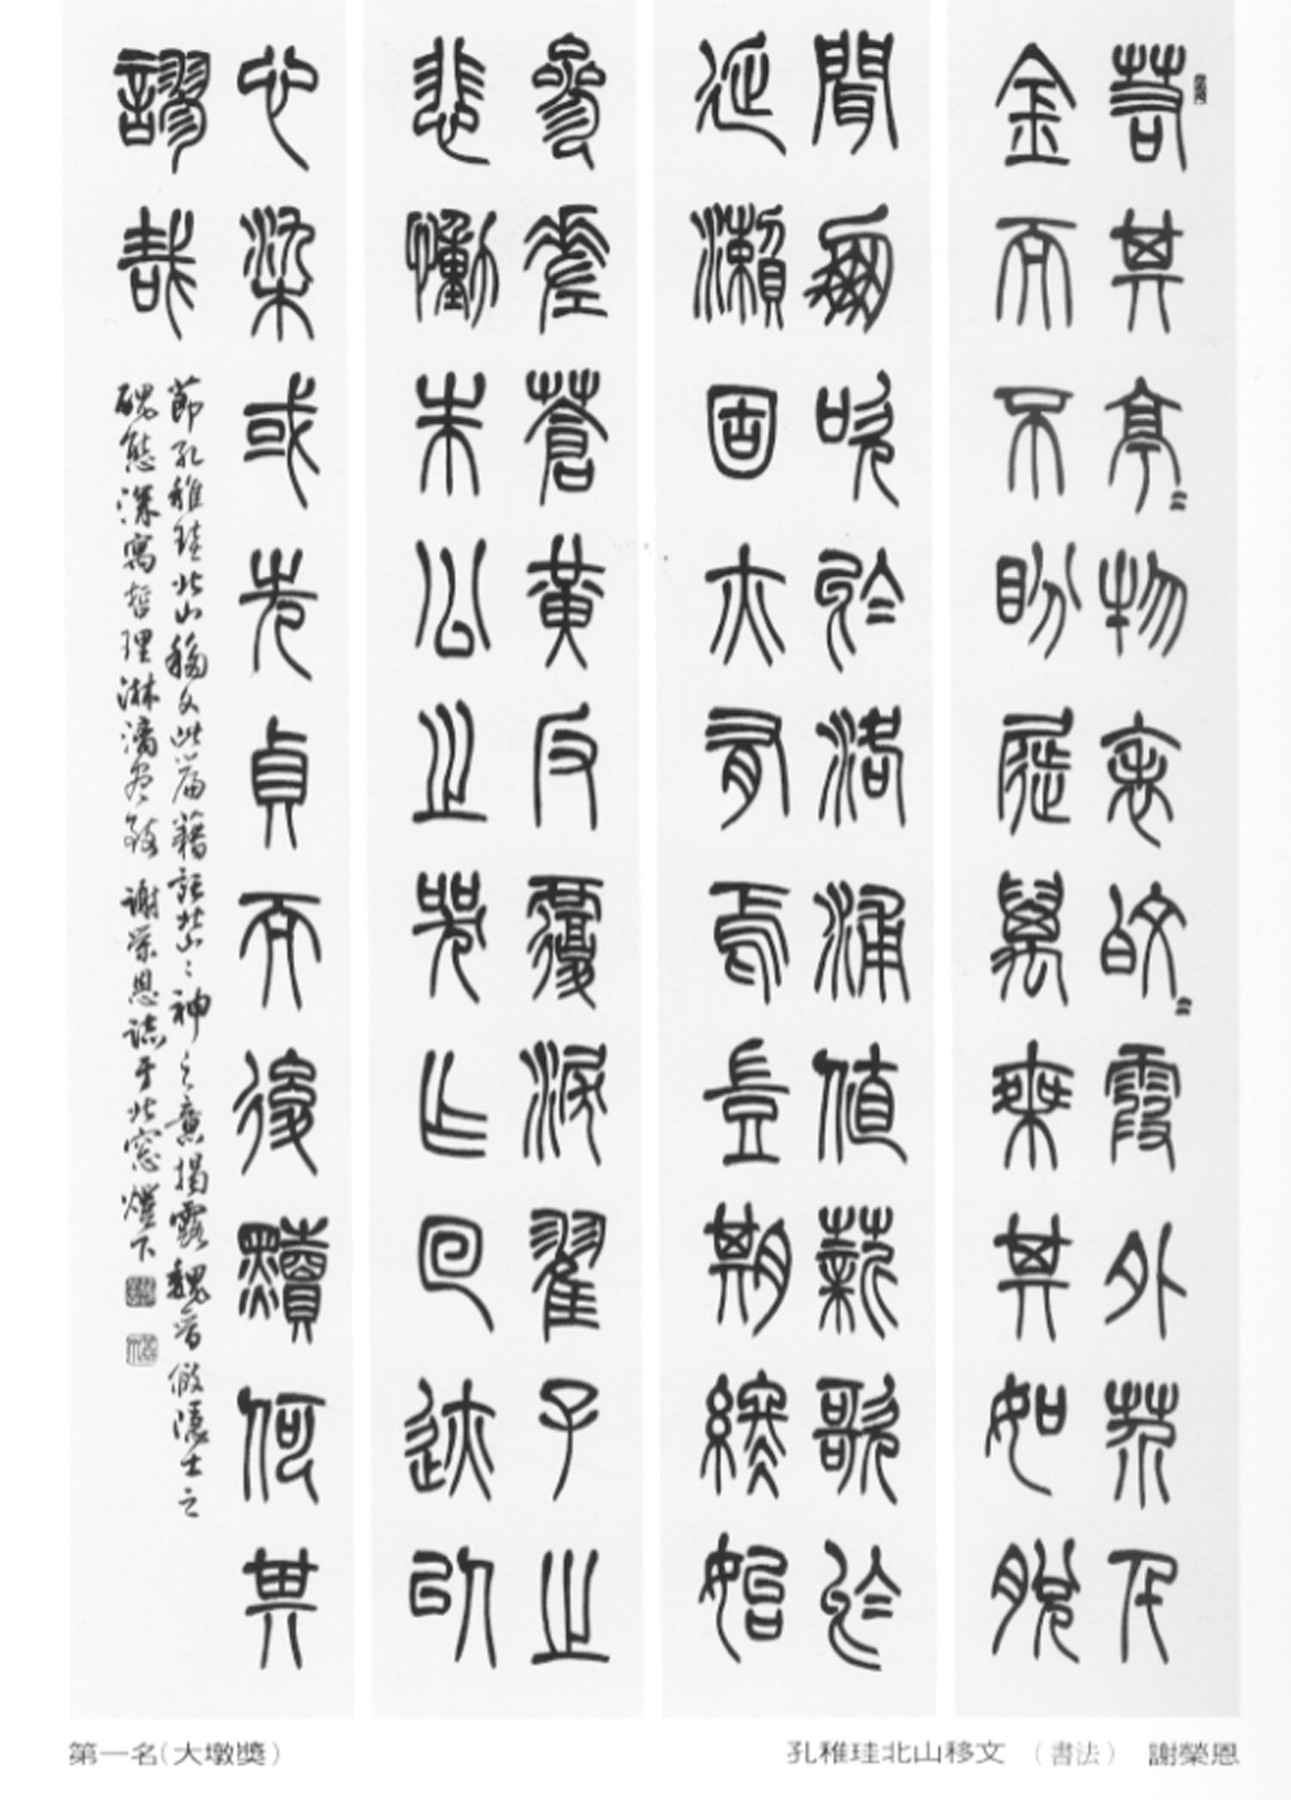 若其亭〻物表皎〻霞外芥千
金而不眄屣萬乘其如脫
聞鳳吹於洛浦值薪歌於
延瀨固亦有焉豈期終始
參差蒼黃反覆淚翟子之
悲慟朱公之哭乍迴跡以
心染或先貞而後黷何其
謬哉
節孔稚珪北山移文此篇藉託北山〻神之意揭露魏晉假隱士之
醜態深寓哲理淋漓盡致 謝榮恩誌于北窗燈下
孔稚珪北山移文 （書法） 謝榮恩
第一名（大墩獎）